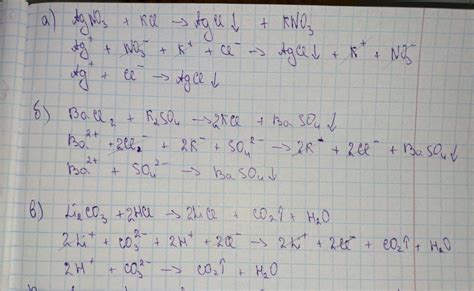 а) AgNO₃ + KCl → AgCl↓ + KNO₃
Ag⁺ + NO₃⁻ + K⁺ + Cl⁻ → AgCl↓ + K⁺ + NO₃⁻
Ag⁺ + Cl⁻ → AgCl↓
б) BaCl₂ + K₂SO₄ → 2KCl + BaSO₄↓
Ba²⁺ + 2Cl₂⁻ + 2K⁻ + SO₄²⁻ → 2K⁺ + 2Cl⁻ + BaSO₄↓
Ba²⁺ + SO₄²⁻ → BaSO₄↓
в) Li₂CO₃ + 2HCl → 2LiCl + CO₂↑ + H₂O
2Li⁺ + CO₃²⁻ + 2H⁺ + 2Cl⁻ → 2Li⁺ + 2Cl⁻ + CO₂↑ + H₂O
2H⁺ + CO₃²⁻ → CO₂↑ + H₂O